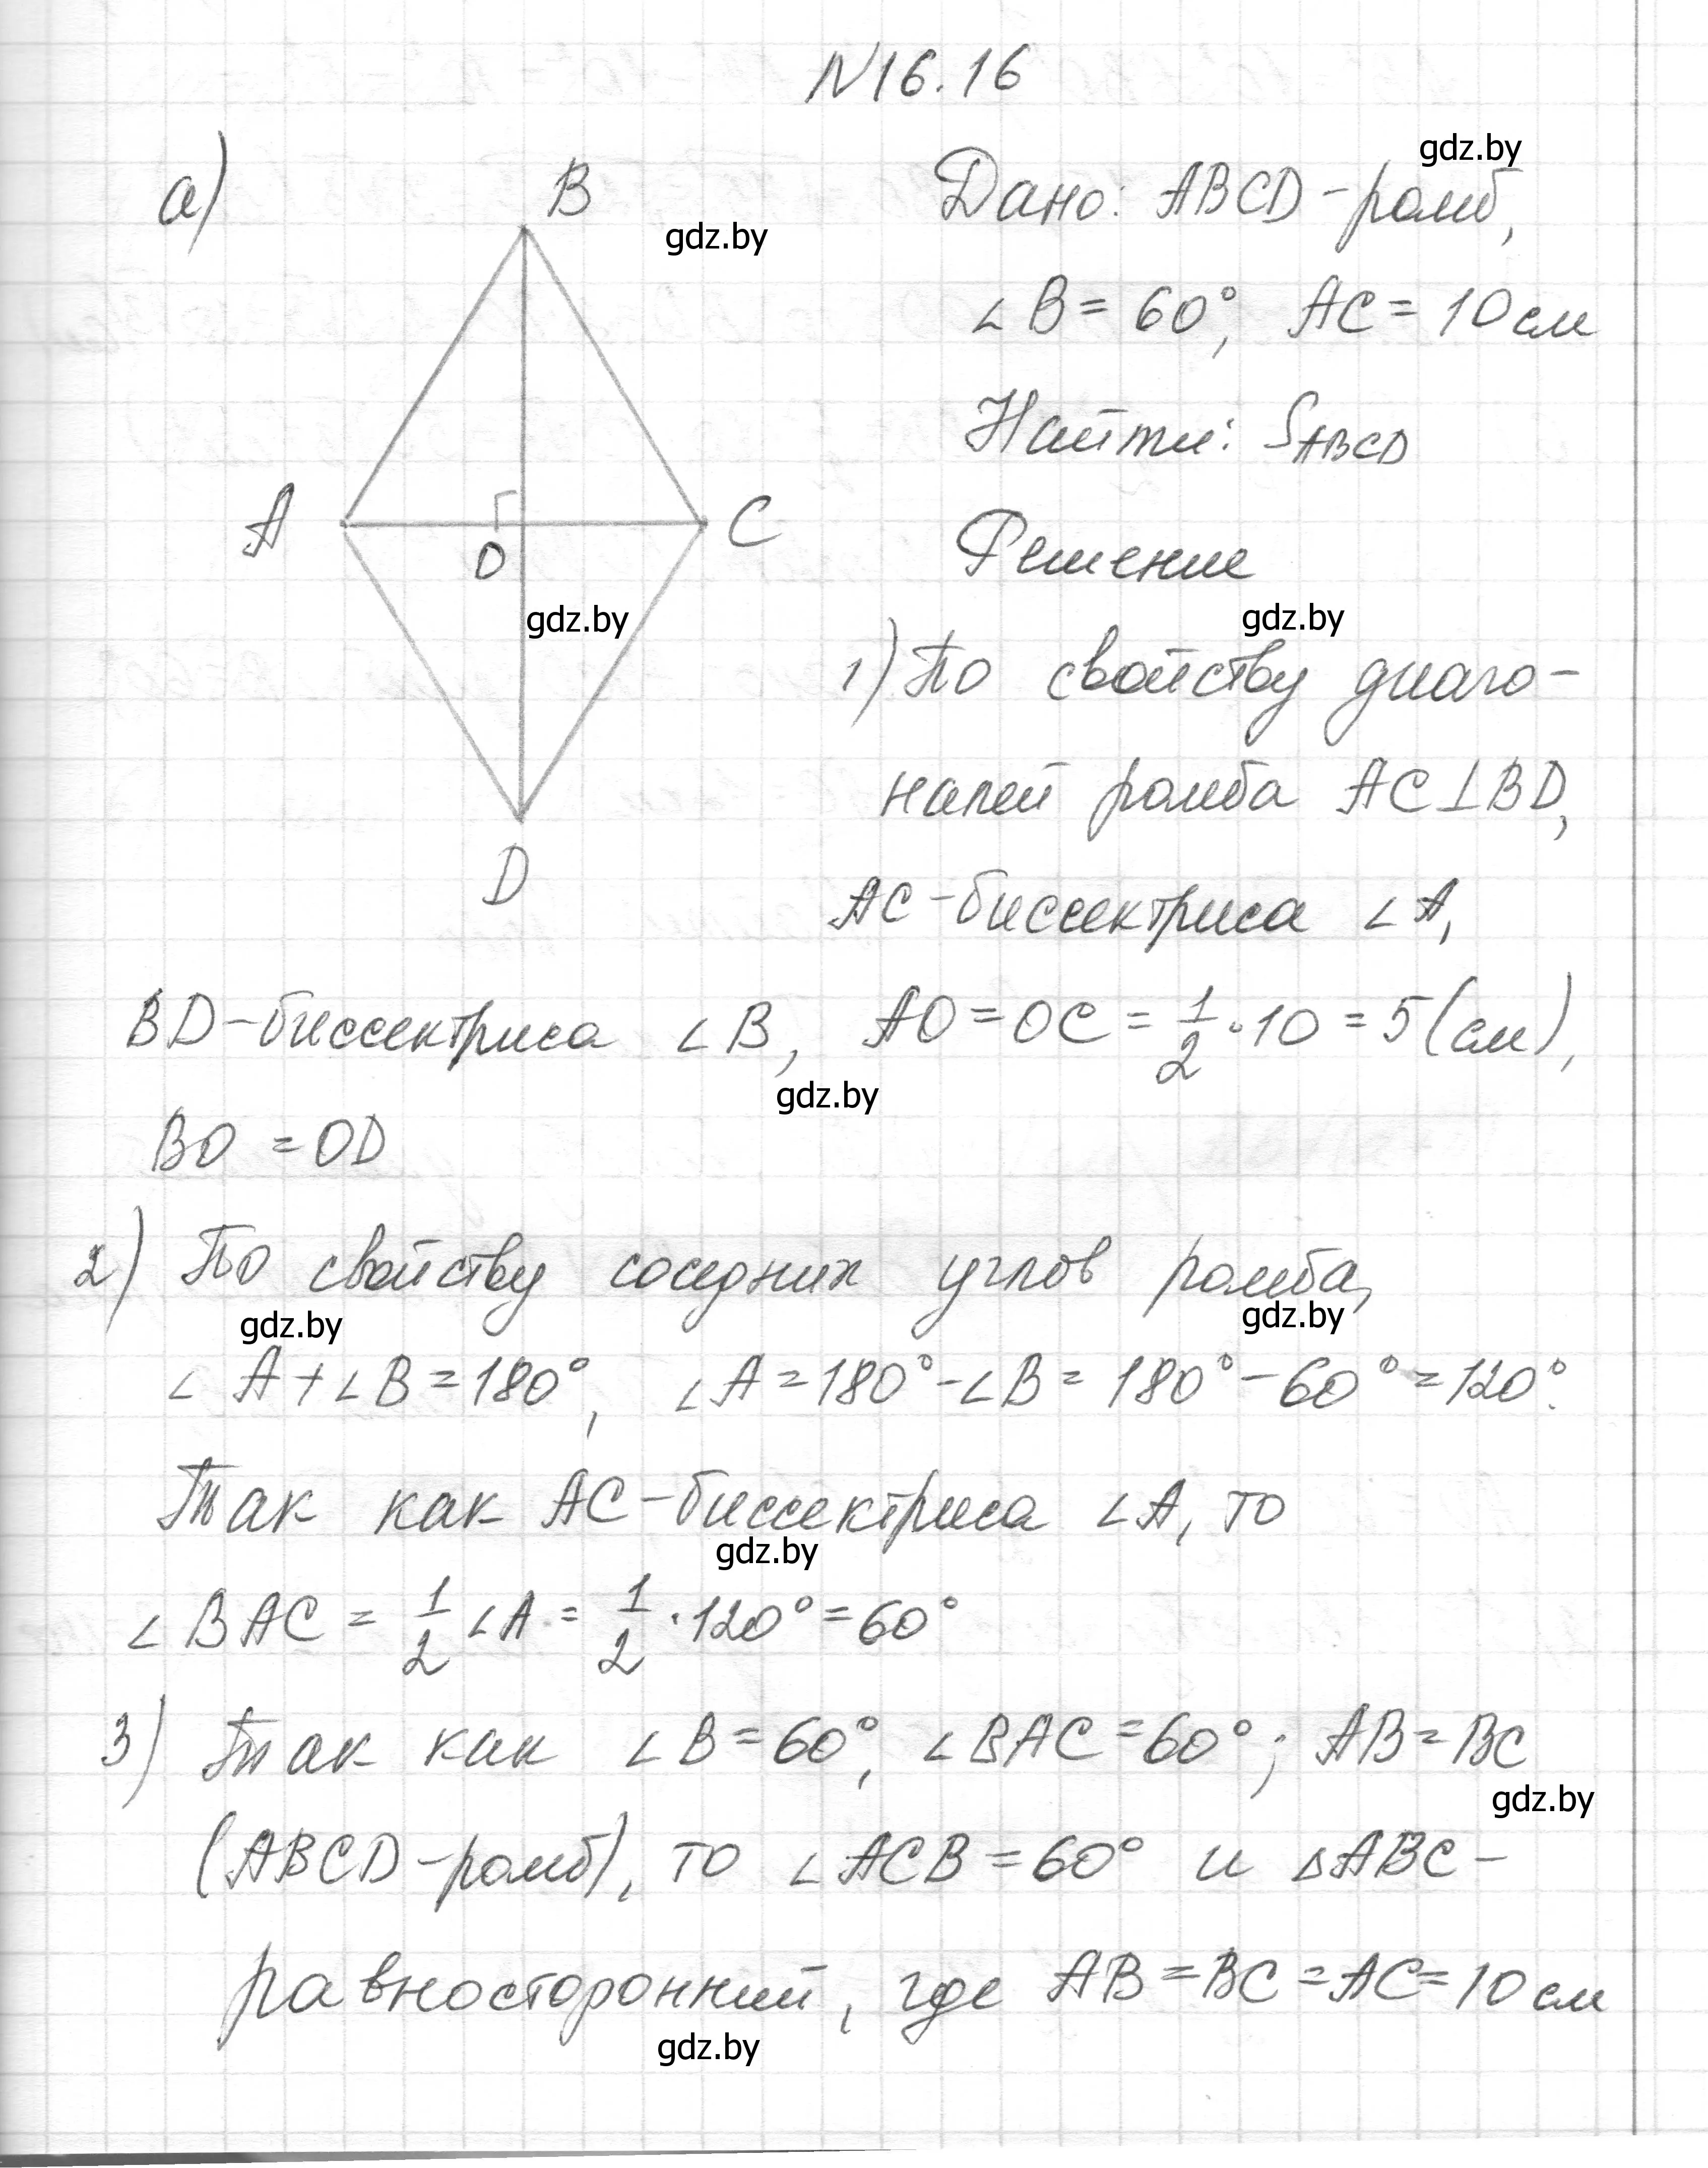 N16.16
а)
B
A
C
O
D
gdz.by
gdz.by
gdz.by
Дано: ABCD - ромб,
∠B = 60°, AC = 10 см
Найти: S_ABCD
Решение
gdz.by
1) По свойству диаго-
налей ромба AC⊥BD,
AC - биссектриса ∠A,
BD - биссектриса ∠B, AO = OC = 1/2 · 10 = 5 (см),
gdz.by
BO = OD
2) По свойству соседних углов ромба,
gdz.by gdz.by
∠A + ∠B = 180°, ∠A = 180° - ∠B = 180° - 60° = 120°.
Так как AC - биссектриса ∠A, то
gdz.by
∠BAC = 1/2 ∠A = 1/2 · 120° = 60°
3) Так как ∠B = 60°, ∠BAC = 60°; AB = BC
gdz.by
(ABCD - ромб), то ∠ACB = 60° и △ABC -
равносторонний, где AB = BC = AC = 10 см
gdz.by